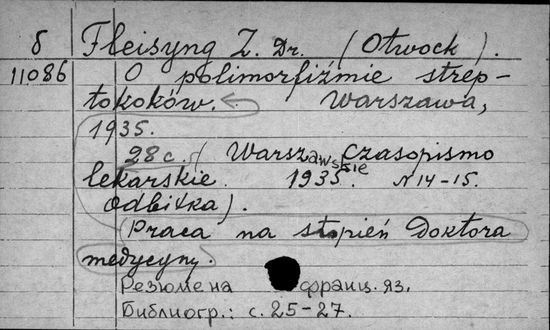 б Fleisyng Z. Dr. (Otwock).
11086 O polimorfiźmie strep-
tokoków. Warszawa,
1935.
28 c. (Warszawskie Czasopismo
lekarskie. 1935. N 14-15.
Odbitka).
(Praca na stopień Doktora
medycyny.
Резюме на франц. яз.
Библиогр.: с. 25-27.